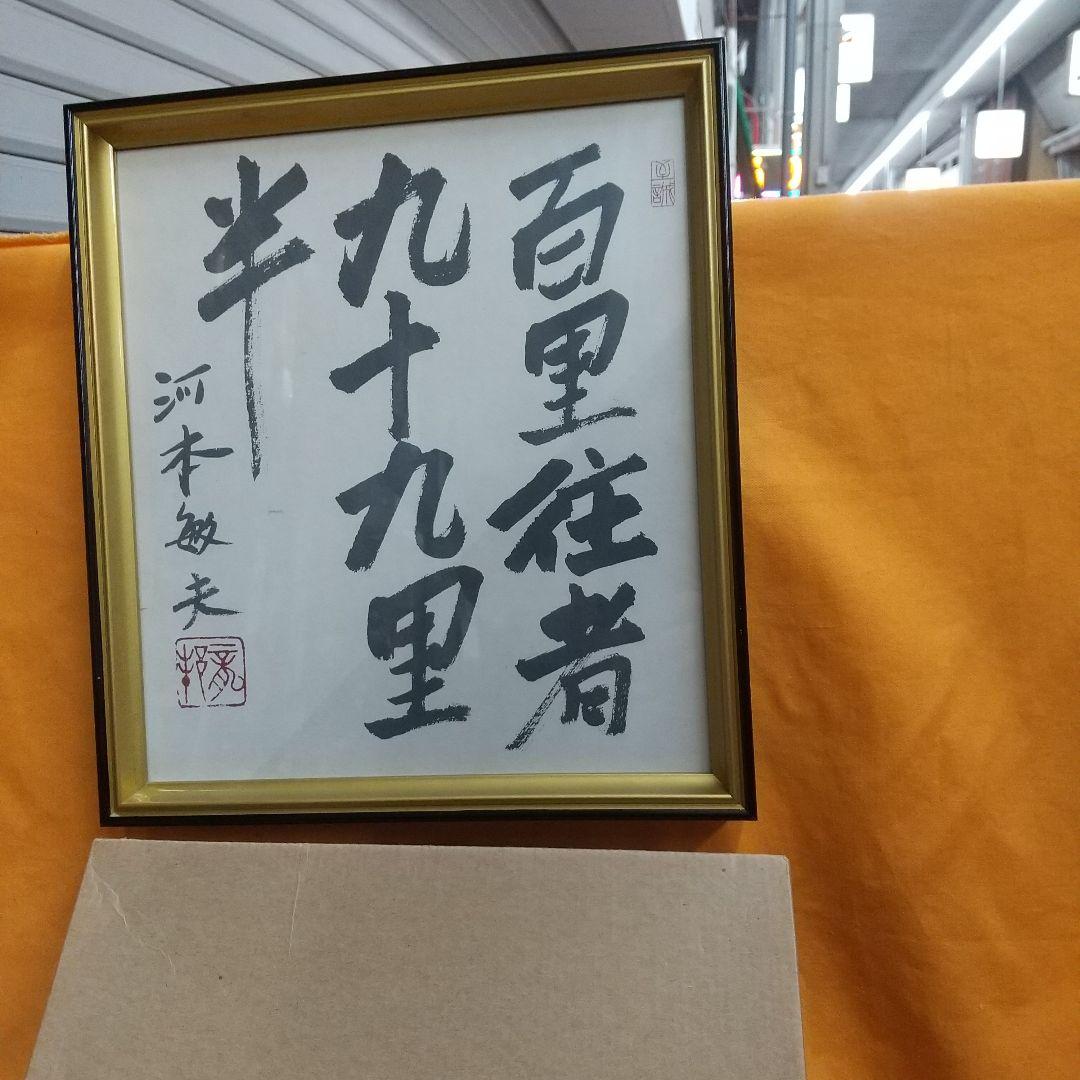 百里往者
九十九里
半
河本敏夫